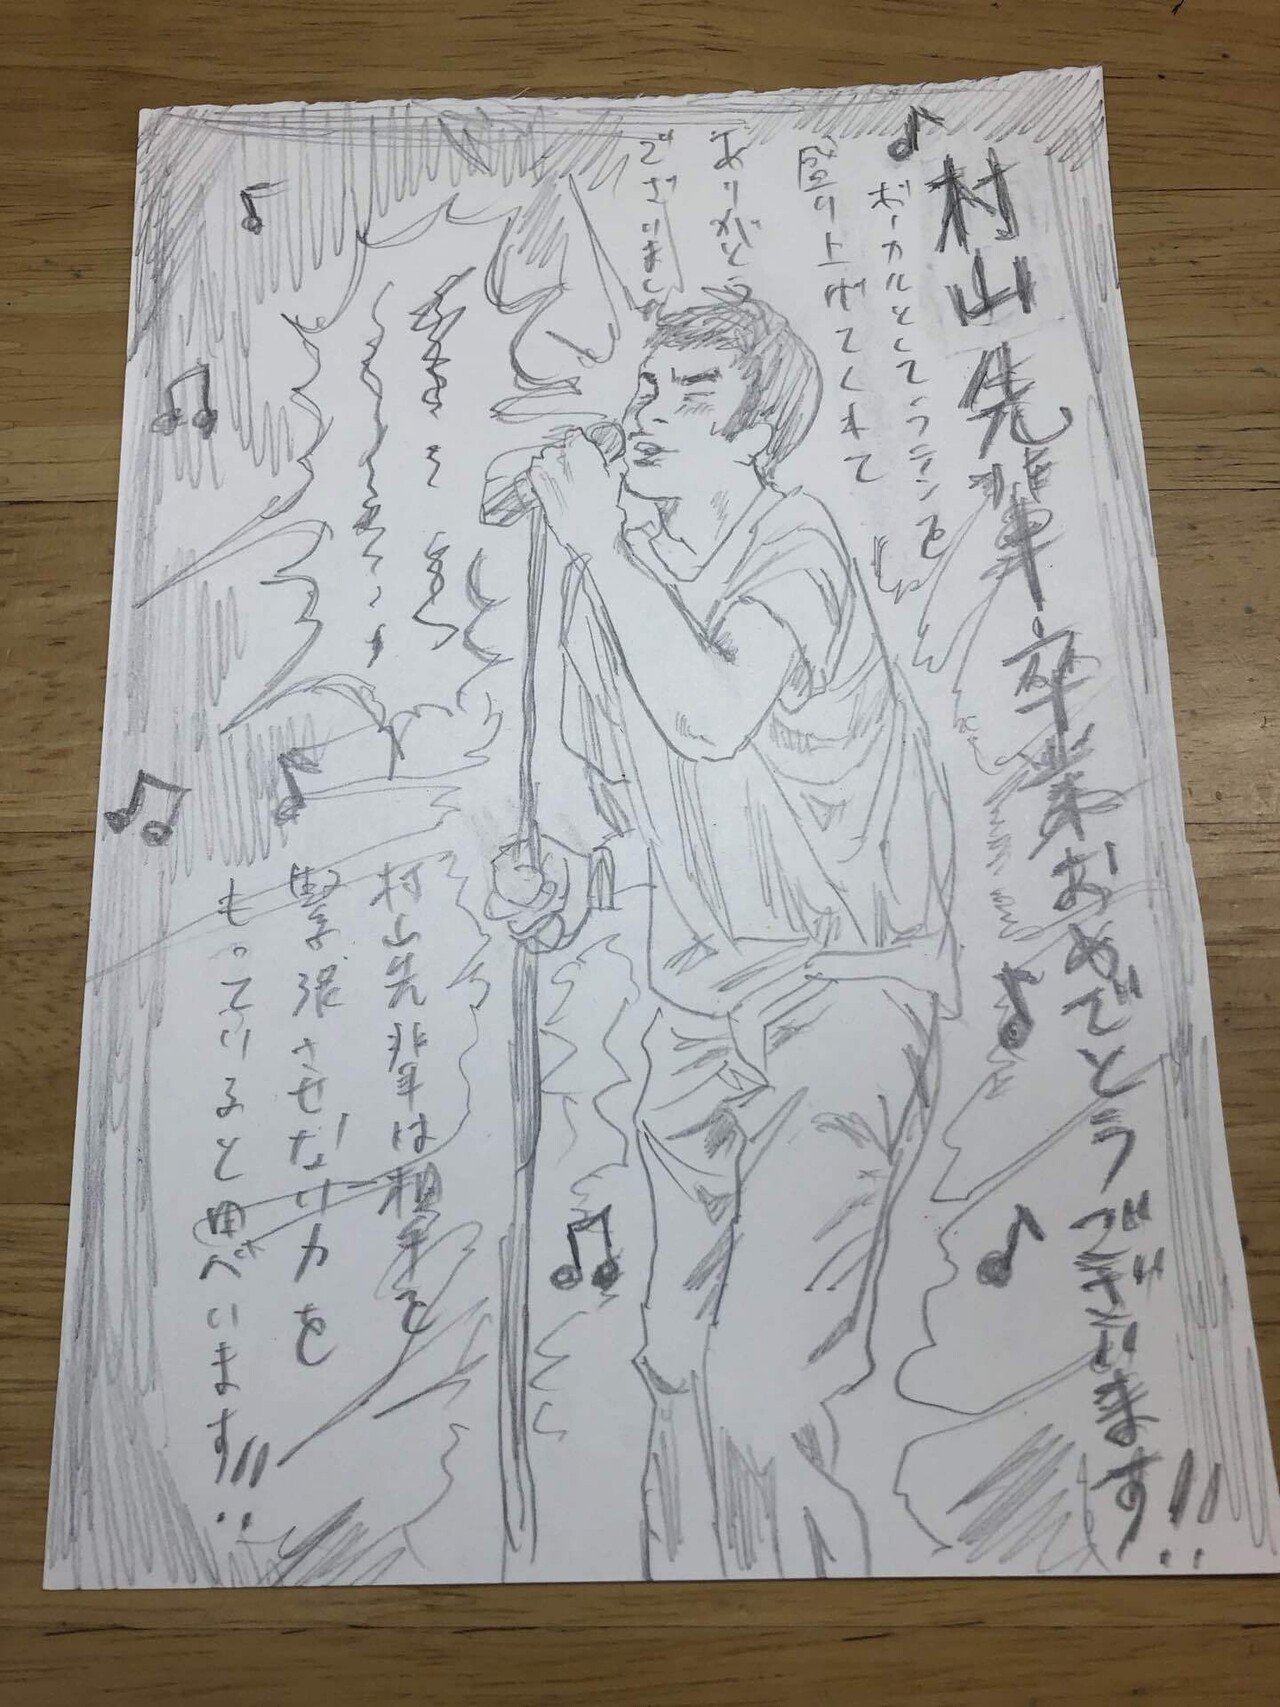 村山先輩卒業おめでとうございます!!
ボーカルとしてラテンを
盛り上げてくれて
ありがとう
ございました
村山先輩は相手を
緊張させない力を
もっていると思います!!